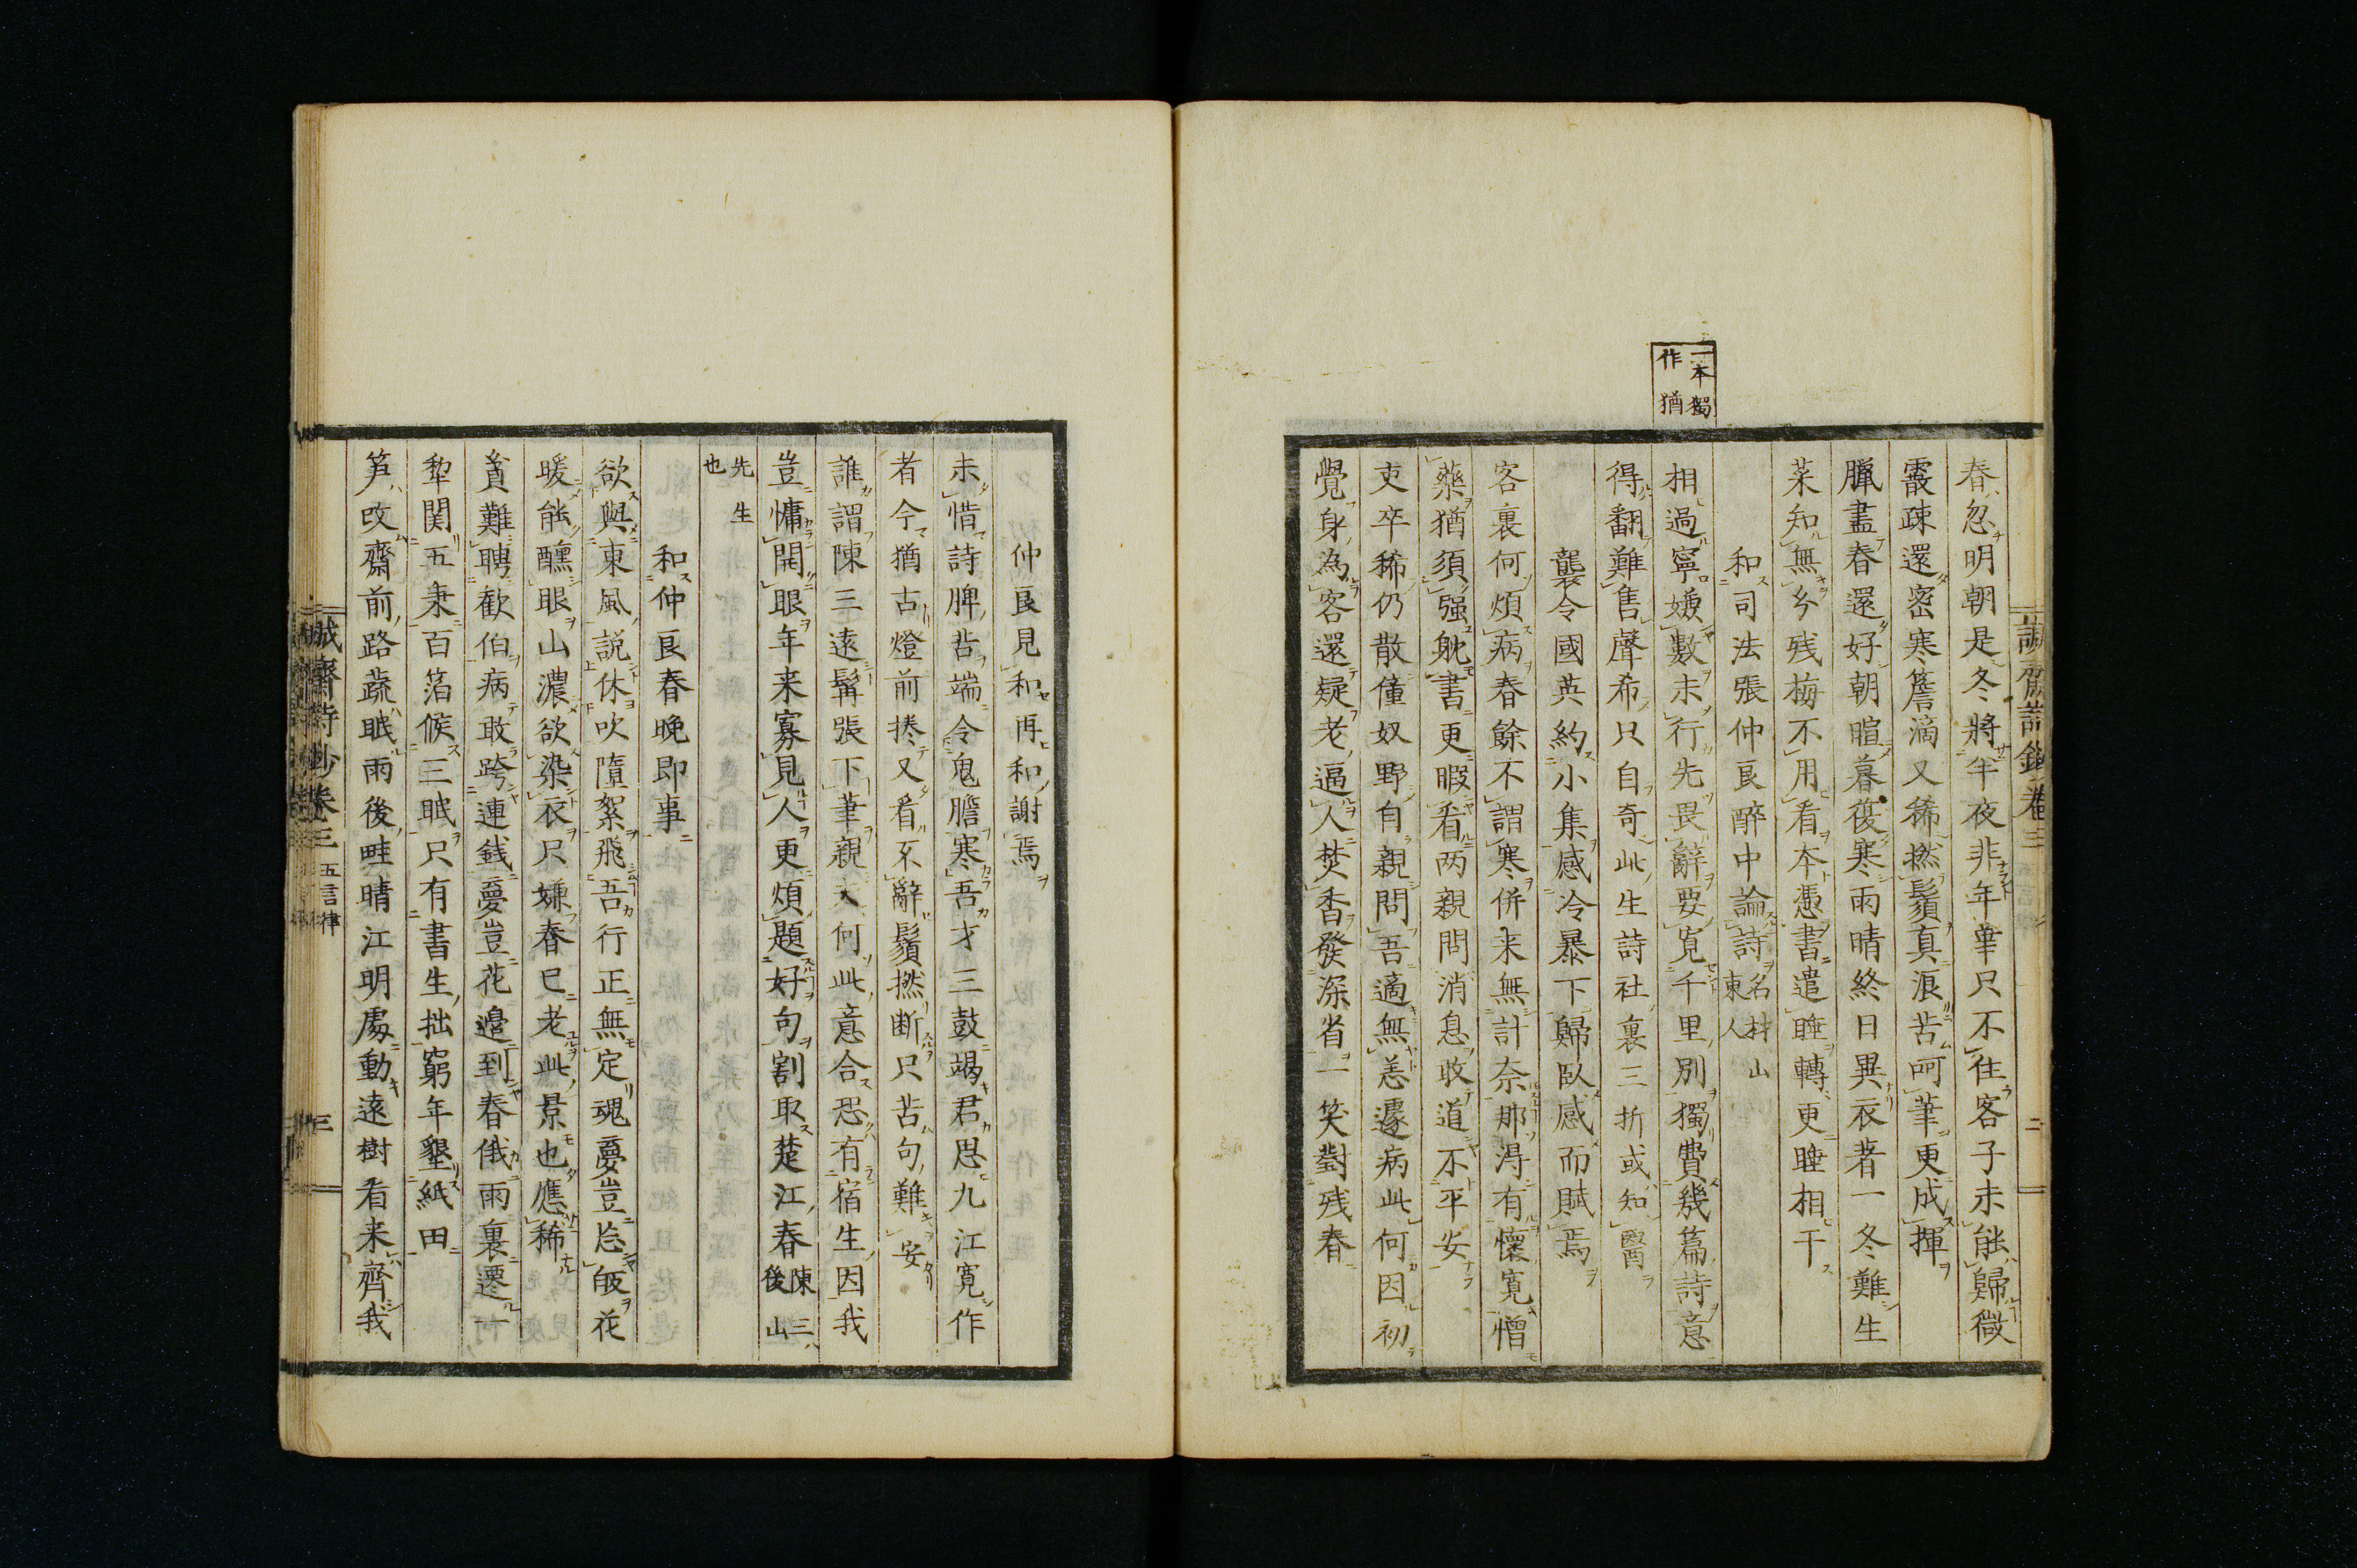 一本獨
作猶
春忽明朝是冬將半夜非年華只不住客子未能歸微
霰疎還密寒簷滴又稀撚鬚真浪苦呵筆更成揮
臘盡春還好朝暄暮復寒雨晴終日異衣著一冬難生
菜知無分残梅不用看本憑書遣睡轉更睡相干
和司法張仲良醉中論詩名材山東人
相過寧嫌數未行先畏辭要寛千里別獨費幾篇詩意
得翻難售聲希只自奇此生詩社裏三折或知醫
襲令國英約小集感冷暴下歸臥感而賦焉
客裏何煩病春餘不謂寒併来無計奈那淂有懷寛憎
藥猶須强躭書更暇看两親問消息敢道不平安
吏卒稀仍散僮奴野自親問吾適無恙遽病此何因初
覺身為客還疑老逼人焚香發深省一笑對残春
仲良見和再和謝焉
未惜詩脾苦端令鬼膽寒吾才三鼓竭君思九江寛作
者今猶古燈前捲又看不辭鬚撚断只苦句難安
誰謂陳三遠髯張下筆親夫何此意合恐有宿生因我
豈慵開眼年来寡見人更煩題好句割取楚江春陳三後山
先生也
和仲良春晚即事
欲與東風説休吹墮絮飛吾行正無定魂夢豈忘皈花
暖能醺眼山濃欲染衣只嫌春已老此景也應稀
貧難聘歓伯病敢跨連銭夢豈花邊到春俄雨裏遷一
犂関五秉百箔候三眠只有書生拙窮年墾紙田
笋改齋前路蔬眠雨後畦晴江明處動遠樹看来齊我
誠齋詩鈔巻三 五言律 三